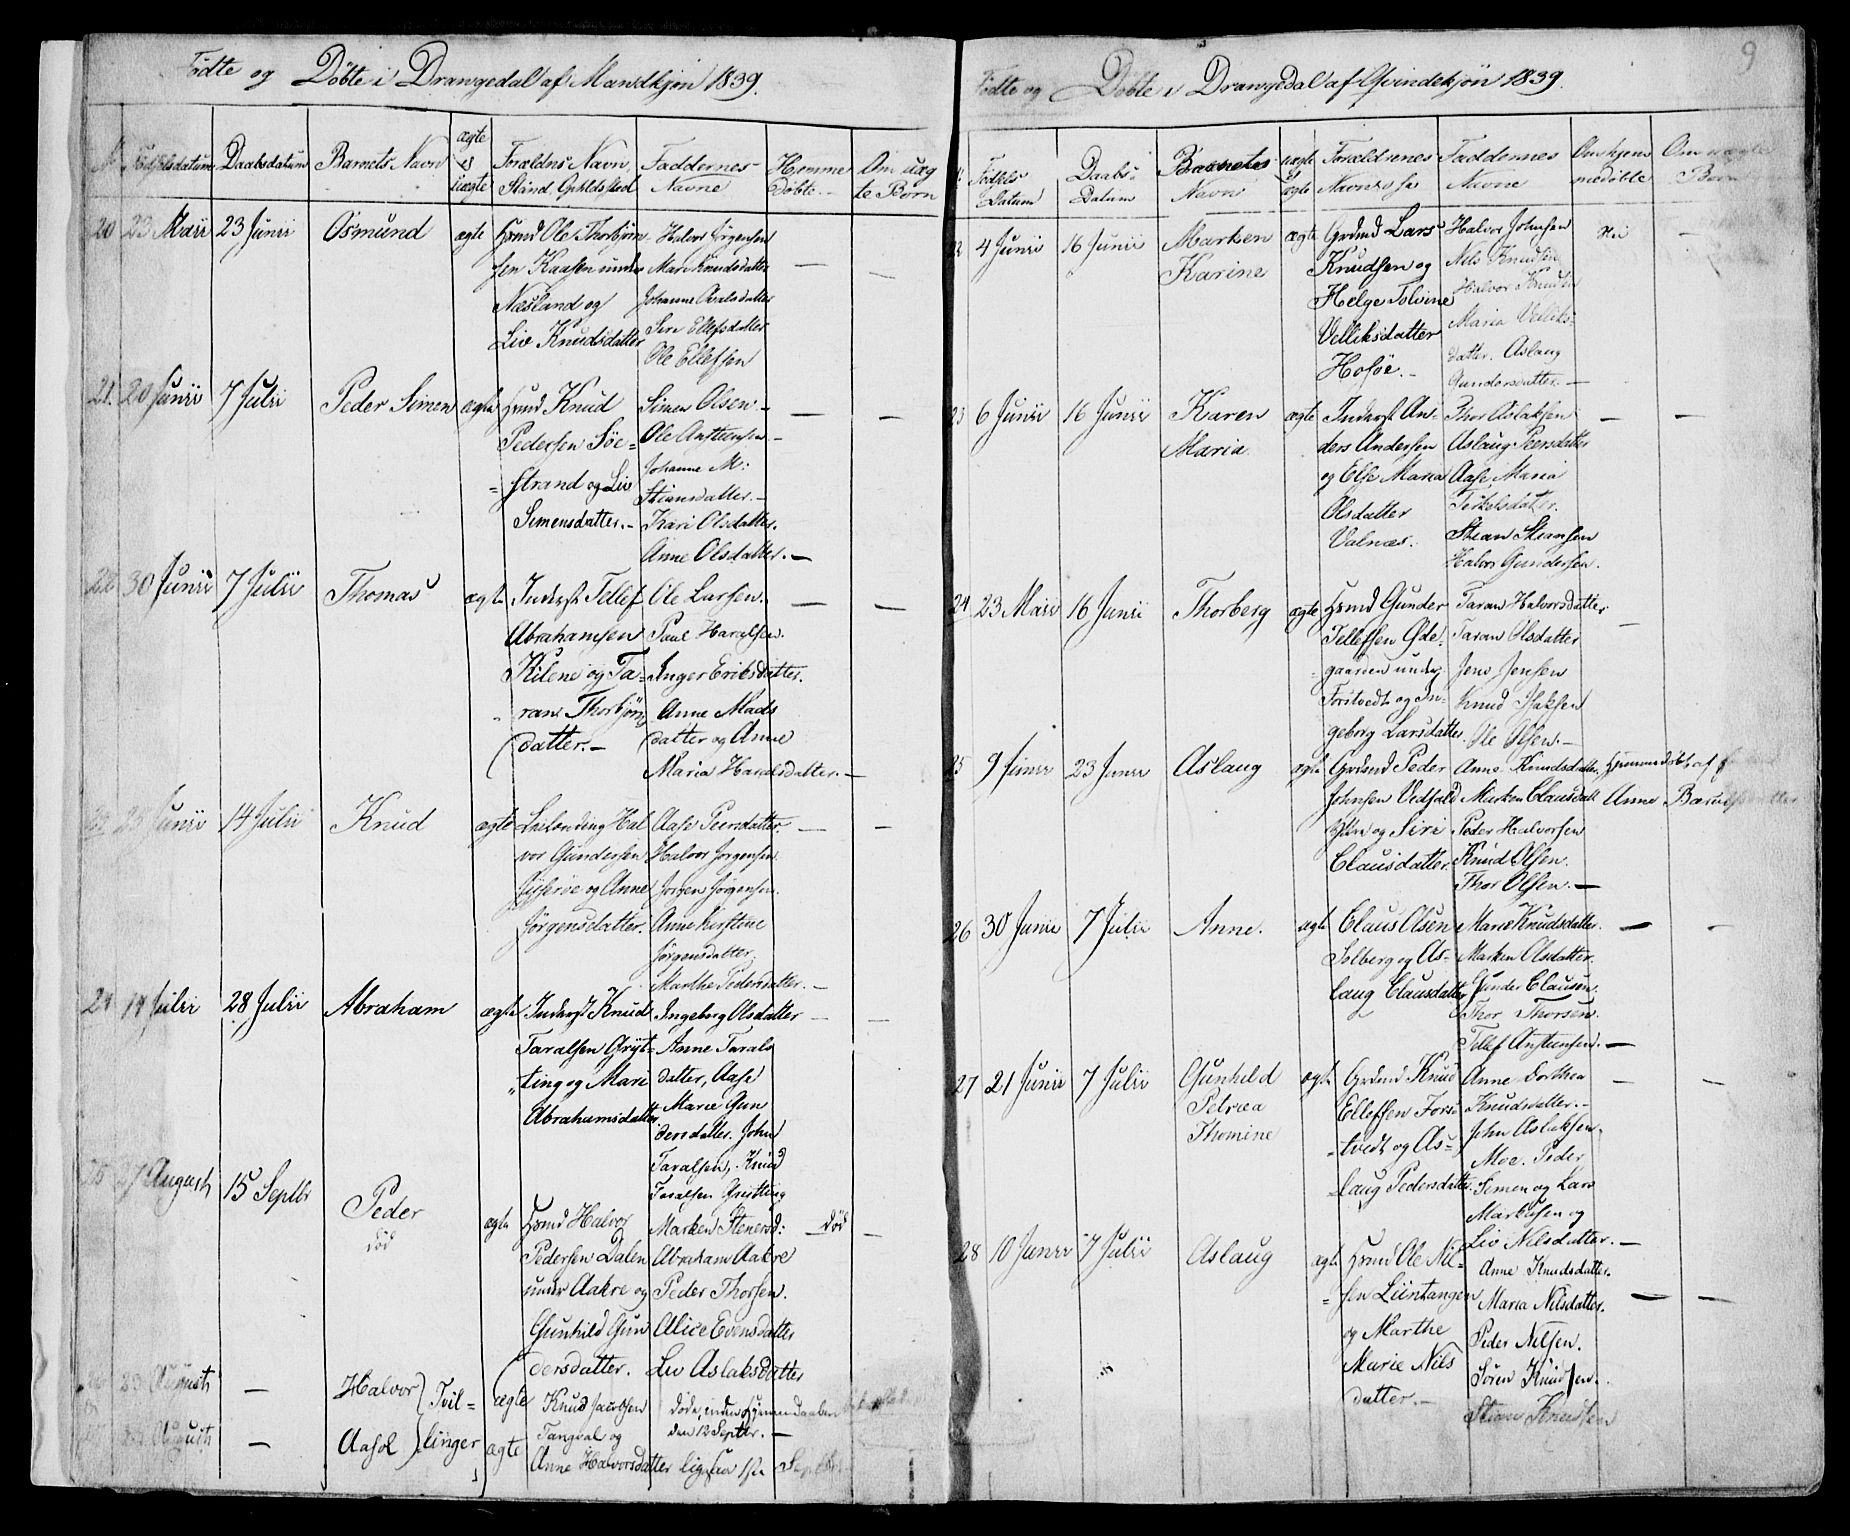 Födte og Döbte i Drangedal af Mandkjøn 1839.
Födselsdatum
Daabsdatum
Barnets Navn
ægte
el
uægte
Forældrs Navn,
Stand Opholdssted
Faddernes
Navne
Hjemme
Døbte
Om uæg
te Børn
20
23 Maii
23 Junii
Osmund
ægte
Hsmd Ole Thorbjörn
sen Kaasen under
Næsland og
Liv Knudsdatter
Halvor Jørgensen
Mari Knudsdatter
Johanne
Siri Ellefsdatter
Ole Ellefsen
21.
20 Junii
7 Julii
Peder Simen
ægte
Hsmd Knud
Pedersen Söe-
strand og Liv
Simensdatter.-
Simen Olsen.-
Ole Anstensen.-
Johanne M:
Stiansdatter.-
Kari Olsdatter.
Anne Olsdatter.-
22
30 Junii
7 Julii
Thomas
ægte
Inderst Tellef
Abrahamsen
Kilene og Ta-
ran Thorbjörns
datter.-
Ole Larsen.
Paul Haralsen.
Inger Eriksdatter.
Anne Mads
datter og Anne
Maria Haralsdatter.-
23 Junii
14 Julii
Knud
ægte
Leilænding Hal
vor Gundersen
og Anne
Jørgensdatter.
Aase Peersdatter
Halvor Jørgensen
Jørgen Jørgensen.
Anne Kirstine
Jørgensdatter.
Marthe Pedersdatter.-
24
14 Julii
28 Julii
Abraham
ægte
Inderst Knud
Taralsen Gryt-
ting og Mari
Abrahamsdatter
Ingeborg Olsdatter
Anne Tarals
datter, Aase
Marie Gun
dersdatter. John
Taralsen, Knud
Taralsen Grytting
25
27 August
15 Septbr
Peder
död
ægte
Hsmd Halvor
Pedersen Dalen
under Aakre og
Gunhild Gun
dersdatter.
Marken Stenersd:
Abraham Aakre
Peder Thorsen.
Alice Evensdatter
Liv Aslaksdatter
död
23 August
Halvor
Tvil-
ægte
Knud Jacobsen
Tangval og
Anne Halvorsdatter
Døde, inden Hjemmedaaben
den 12 Septbr.-
August
Aasol
linger
ægte
9
Födte og Döbte i Drangedal af Qvindekjön 1839.
Födsels
Datum
Daabs
Datum
Barnets
Navn
uægte
el
ægte
Forældrenes
Navne
Faddernes
Navne
Om hjem
medöbte
Om uægte
Børn
22
4 Junii
16 Junii
Marken
Karine
ægte
Grdmd Lars
Knudsen og
Helge Tolvine
Velliksdatter
Hosöe.-
Halvor Johnsen
Nils Knudsen
Halvor Knudsen
Maria Velliks-
datter. Aslaug
Gundersdatter.-
Nei
23
6 Junii
16 Junii
Karen
Maria
ægte
Inderst An-
ders Andersen
og Else Maria
Olsdatter
Valnæs.
Thor Aslaksen
Aslaug Peersdatter
Aase Maria
Terkelsdatter.
Stian Stiansen
Halvor Gundersen.
24
23 Maii
16 Junii
Thorberg
ægte
Hsmd Gunder
Tellefsen Öde-
gaarden under
Forstvedt og In-
geborg Larsdatter
Taran Halvorsdatter
Taran Olsdatter
Jens Jensen
Knud Isaksen
Ole Olsen.-
25
9 Junii
23 Junii
Aslaug
ægte
Grdmd Peder
Johnsen Vedfald
og Siri
Clausdatter.
Anne Knudsdatter.
Marken Clausdatt
Peder Halvorsen
Knud Olsen.
Thor Olsen.-
Hjemmedöbt af
Anne
26
30 Junii
7 Julii
Anne.
ægte
Claus Olsen
Solberg og As-
laug Clausdatter
Marie Knudsdatter.
Marken Olsdatter.
Gunder Clausen.
Thor Thorsen.
Tellef Anstensen.-
27
21 Junii
7 Julii
Gunhild
Petrea
Thomine
ægte
Grdmd Knud
Ellefsen Fors-
tvedt og As-
laug Pedersdatter.
Anne Dorthea
Knudsdatter.-
John Aslaksen.
Moe. Peder
Simen og Lars
Markusen og
Liv Nilsdatter.-
28
10 Junii
7 Julii
Aslaug
ægte
Hsmd Ole Nil-
sen Lüntangen
og Marthe
Marie Nils
datter.-
Anne Knudsdatter.
Maria Nilsdatter.
Peder Nilsen.
Sören Knudsen.
Knudsen